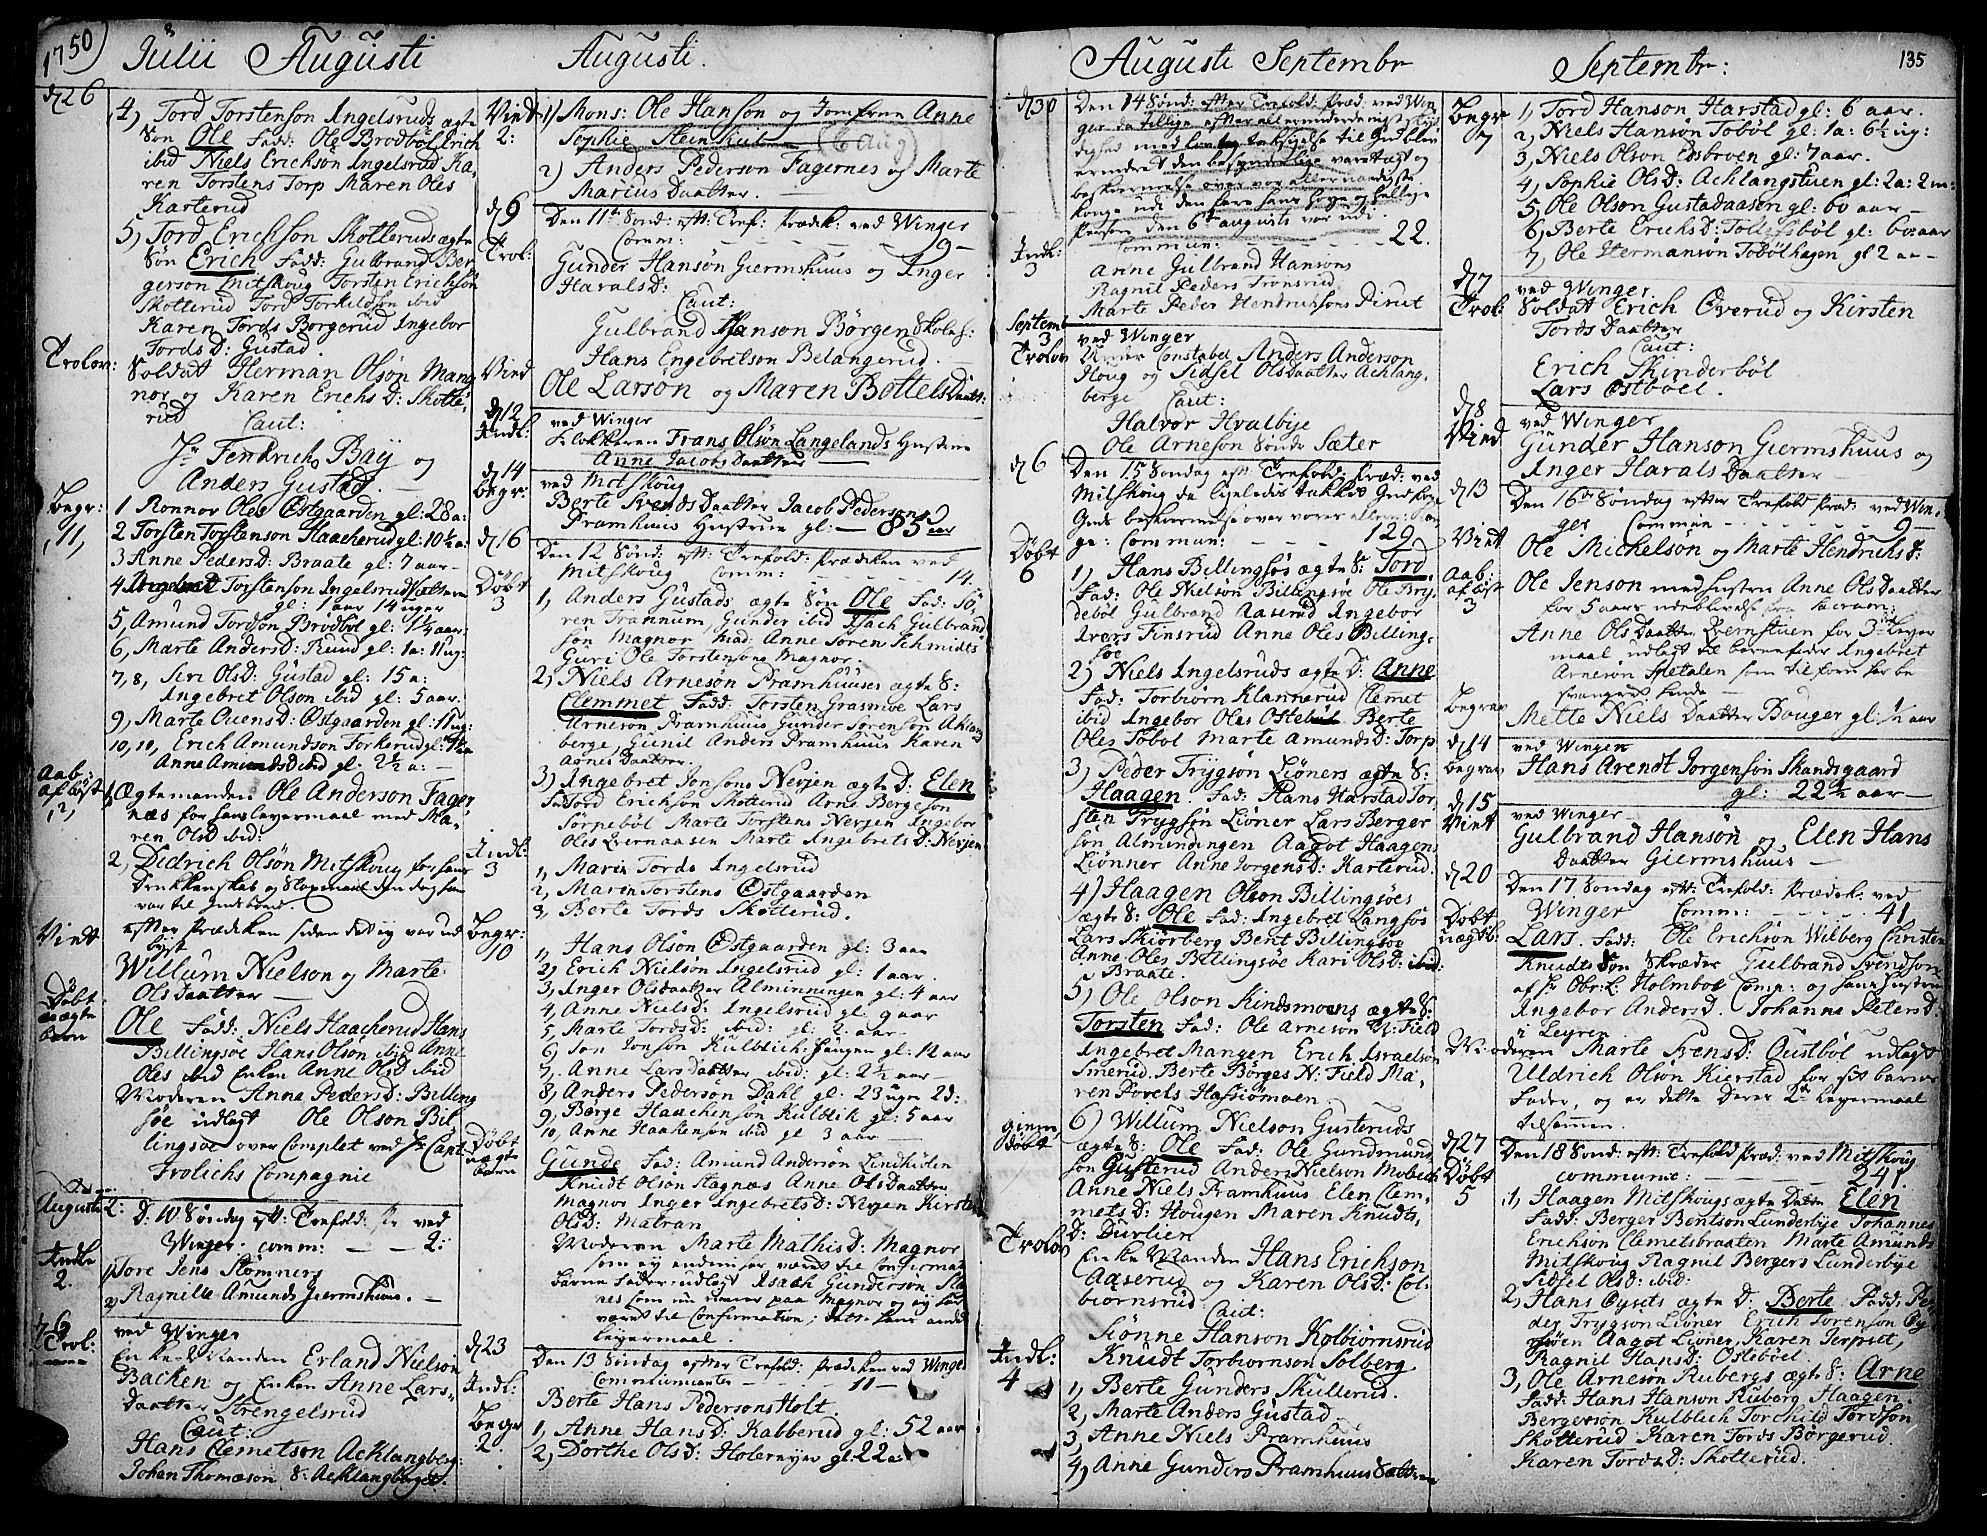 1750) Julii Augusti
d 26
4, Tord Torstenson Ingelsruds ægte
Søn Ole Fad: Ole Brodböl Erich
ibid Niels Erickson Ingelsrud Ka,
ren Torstens Torp Maren Oles
Kasterud
5, Tord Erichson Skotteruds ægte
Søn Erich Fadd: Gulbrand Ber
gerson Mitskoug Torsten Erichson
Skotterud Tord Torkildson ibid
Karen Tords Borgerud Ingebor
Tords D: Gustad.
Trolov:
Soldat Herman Olsön Mang
nor og Karen Erichs D: Skotte,
rud
Caut:
Fendrich Baÿ og
Anders Gustad.
Begr:
11,
1 Ronnor Oles Østgaarden gl: 28 a:
2 Torsten Torstenson Haacherud gl: 10½ a:
3 Anne Peders D: Braate gl: 7 aar
4 Torstenson Ingelsrud
gl: 1 aar 14 uger
5, Amund Tordson Brodböl gl: 1¼ aar:
6, Marte Anders D: Ruud gl: 1 a: 11 ug:
7, 8, Siri Ols D: Gustad gl: 15 a:
Ingebret Olson ibid gl: 5 aar
9, Marte Ouens D: Østgaarden gl: 11 ug:
10, 11, Erich Amundson Torkerud gl:
Anne Amunds D ibid gl. 2½ a:
Aab:
afløst
2,
1, Ægtemanden Ole Anderson Fager
næs for hans leyermaal med Ma,
ren Ols D ibid:
2, Didrich Olsön Mitskoug for hans
Drukkenskab og
var til Guds bord.
Viet
efter Prædiken siden det ey var ud
lyst
Willum Nielson og Marte
Ols Daatter
Döbt
uægte
barn
Ole Fadd: Niels Haacherud Hans
Billingsöe Hans Olson ibid Anne
Oles ibid Enken Anne Ols D ibid
Moderen Anne Peders D: Billing
söe udlagt Ole Olson Bil
lingsøe over Complet ved Hr Capt
Frolichs Compagnie
Augusti 2:
D: 10 Søndag eft: Trefold: Pr ved
Winger. comm: — 2:
Indl:
2.
1, Tore Jens Stömners
2, Ragnille Amunds Giermshuus.
d 6
Trol:
ved Winger
Enke-Manden Erland Nielson
Backen og Enken Anne Lars,
Daatter Strengelsrud
Caut:
Hans Clemetson Acklangberg:
Johan Thomæson S: Acklangberget.
Augusti.
Viet
2:
1, Mons: Ole Hanson og Jomfrue Anne
Sophie Stein (6 Aug)
2) Anders Pederson Fagernes og Marte
Marius Daatter
d 9
Den 11te Sönd: eft: Tref: Prædk: ved Winger
Comm: 9
Trol:
Gunder Hansön Giermshuus og Inger
Harals D:
Caut:
Gulbrand Hanson Börgen Skoles:
Hans Engebretson Belangerud.
Vied
Ole Larsön og Maren Bottels Daatt:
d 12
Indl:
ved Winger
Klokkeren Frans Olsön Langelands Hustrue
Anne Jacobs Daatter
d 14
Begr:
ved Mitskoug
Berte Svends Daatter Jacob Pedersens
Pramhuus Hustrue gl: — 85 aar
d 16
Den 12 Sönd: eft: Trefold: Prædiken ved
Mitskoug Comm: 14.
Döbt
3
1, Anders Gustads ægte Sön Ole Fad: Sö,
ren Trannum, Gunder ibid Isach Gulbrand
sön Magnor Mad: Anne Sörens Schmidts
Guri Ole Torstensons Magnor.
2) Niels Arneson Pramhuuses ægte S:
Clemmet Fadd: Torsten Grasmöe Lars
Arneson Pramhuus Gunder Sörenson Aklang
berge, Gunil Anders Pramhuus Karen
Agnes Daatter.
3) Ingebret Jonsons Nerjen ægte D: Elen
Fad: Tord Erichson Skotterud Arne Bergeson
Sörpeböl Marte Torstens Nerjen Ingebor
Oles Lernaasen Marte Ingebrets D: Nerjen
Indl:
3
1, Marin Tords Ingelsrud
2, Maren Torstens Østgaarden
3, Berte Tords Skotterud.
Begr:
10
1, Hans Olsön Østgaarden gl: 3 aar
2, Erich Nielsön Ingelsrud gl: 1 aar.
3, Inger Olsdaatter Almenningen gl: 4 aar
4, Anne Niels D: Ingelsrud gl. 9 aar
5, Marte Tords D: ibid: gl: 2 aar
6, Jon Jonson Kulblich haugen gl: 12 aar
7, Anne Lars Daatter ibid: gl: 2½ aar
8, Anders Pedersön Dahl gl: 23 uger 2 D:
9, Börge Haachensön Kulblik gl: 5 aar
10, Anne Haakensön ibid gl 3 aar
Döbt
uægte
barn
Gunde Fad: Amund Andersön Lindhölen
Knudt Olson Stagnæs Anne Olsdaatter
Magnor Inger Ingebrets D: Nerjen Kirsten
Ols D: Matran
Moderen Marte Mathis D: Magnor
som ey endnu har været til Confirmat
barne Fader udlagt Isach Gunderson Sta
nes som nu tiener paa Magnor og ey har
været til Confirmation; dette hans andet
Leyermaal.
d 23
Den 13 Söndag efter Trefold: Prædiken ved Winger
Communicanter 11
Indl:
Berte Hans Pedersons Holt.
Begr
2.
1, Anne Hans D: Kabberud gl: 52 aar
2, Dorthe Ols D: Holereyer gl: 22 a
Augusti Septembr
d 30
Den 14 Sönd: efter Trefold: Præd: ved Win
ger da tillige efter allernaadigst
med Lov og taksigelse til Gud blev
erindret den besynderlige varetægt og
beskiermelse over vor allernaadigste
Konge udi den fare hans höye og hellige
Person den 6te augusti var udi.
Commun: 22.
Indl:
3
Anne Gulbrand Hansons
Ragnil Peders Tronsrud
Marte Peder Hendrichsons Dirut
Septemb
3
Trolov
ved Winger
Under Constabel Anders Anderson
Houg og Sidsel Olsdaatter Achlang,
berge Caut:
Halvor Hvalbye
Ole Arneson Söndr Sæter
d 6
Den 15 Söndag eft: Trefold: Præd: ved
Mitskoug da ligeledes takkes Gud for
Guds beskiermelse over vores allern: Kon
ge: Commun: 129
Döbt
6
1, Hans Billingsøs ægte S: Tord.
Fad: Ole Nielsön Billingsøe Ole Bry,
deböl Gulbrand Aaserud Ingebor
Ivers Finsrud Anne Oles Billing,
söe
2) Niels Ingelsruds ægte D: Anne
Fad: Torbiorn Klannerud Clemet
ibid Ingebor Oles Osteböl Berte
Oles Toböl Marte Amunds D: Torp
3) Peder Trygsön Liöners ægte S:
Haagen. Fad: Hans Harstad Tor
sten Trygson Liöner Lars Berger
sön Almindingen Aagot Haagens
Liönner Anne Jorgens D: Karterud.
4) Haagen Olson Billingsöes
ægte S: Ole Fad: Ingebret Langsjös
Lars Skiörberg Bent Billingsöe
Anne Oles Billingsöe Kari Ols D: ibid:
Braate.
5) Ole Olson Kindsmoens ægte S:
Torsten Fad: Ole Arnesön N: Field
Ingebret Mangen Erich Israelsön
Smerud Berte Börges N: Field Ma,
ren Povels Hassiömoen.
giem,
döbt
6) Willum Nielson Gusteruds
ægte S: Ole Fad: Ole Gundmund
sön Gusterud Anders Nielson Mobech
Anne Niels Pramhuus Elen Clem,
mets D: Hougen Maren Knudts,
D: Durlien
Trolov
Enke Manden Hans Erichson
Aaserud og Karen Ols D: Col,
biörnsrud
Caut:
Siönne Hanson Kolbiörnsrud
Knudt Torbiornson Solberg.
Indl:
4
1, Berte Gunders Skullerud.
2, Marte Anders Gustad
3, Anne Niels Pramhuus
4, Anne Gunders Pramhuus
Septembr: 135
Begr
7
1, Tord Hanson Harstad gl: 6 aar.
2, Niels Hansön Toböl gl: 1 a: 6½ ug:
3, Niels Olson Edsbroen gl: 7 aar.
4, Sophie Ols D: Achlangstuen gl: 2 a: 2 m:
5, Ole Olson Gustadaasen gl: 60 aar
6, Berte Erichs D: Tollefsböl gl: 60 aar
7, Ole Hermansön Toböl hagen gl 2 aa
d 7
Trol:
ved Winger
Soldat Erich Överud og Kirsten
Tords Daatter
Caut:
Erich Skinderböl
Lars Østböel.
d 8
Vied
ved Winger
Gunder Hanson Giermshuus og
Inger Harals Daatter
d 13
Den 16de Söndag efter Trefold: Præd: ved Win,
ger Commun 9
Viet
Ole Michelsön og Marte Hendrichs D:
Aab:
afløst
3
Ole Jenson med hustru Anne Ols Daatter
for 5 aars udeblivelse fra sacram:
Anne Ols Daatter for 3die Leyer
maal udlagt til barnefader Ingebret
Arnesön Spetalen som tilforn har be
svangret hende
Begrav
Mette Niels Daatter Bouger gl: ½ aar
d 14
Begrav
ved Winger
Hans Arendt Jorgensön Skandsgaard
gl: 22½ aar
d 15
Viet
ved Winger
Gulbrand Hansön og Elen Hans
Daatter Giermshuus
d 20
Den 17 Söndag eft: Trefold: Prædik: ved
Winger Comm: 41
Döbt
uægte b:
Lars. Fadd: Ole Erichsön Wilberg Christen
Knudtsön Skræder Gulbrand Svendson
af Hr Obr: L: Holmboe Comp: og hans hustrue
Ingebor Anders D. Johanna Peters D:
i Leyren
Moderen Marte Svens D: Qustböl udlagt
Uldrich Olsön Kierstad for sit barns
Fader, og er dette deres 2det Leyermaal
tilsammen.
d 27
Den 18 Sönd: eft: Trefold Præd: ved Mitskoug
communic: 241.
Döbt
5
1, Haagen Mitskougs ægte Datter Elen
Fadd: Berger Bentson Lunderbye Johannes
Erichson Clemetsbraaten Marte Amunds
Mitskoug Ragnil Bergers Lunderbye
Sidsel Ols D: ibid:
2, Hans Öysets ægte D. Berte Fadd: Pe,
der Trygson Liöner Erich Sörenson Öy
Aagot Liöner, Karen Terpset,
Ragnil Hans D: Ostböel.
3, Ole Arneson Rubergs ægte S: Arne
Fadd: Hans Hanson Ruberg Haagen
Bergersön Kulblich Torchild Tordsön
Skotterud Karen Tords Börgerud.
Karen Tords D: Skotterud.